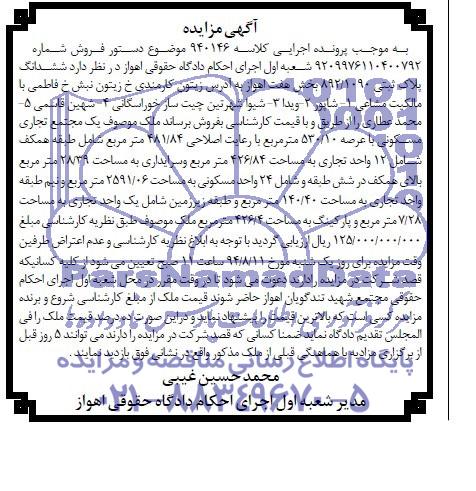 آگهی مزایده
به موجب پرونده اجرایی کلاسه ۹۴۰۱۴۶ موضوع دستور فروش شماره
۹۲۰۹۹۷۶۱۱۰۴۰۰۷۹۲ شعبه اول اجرای احکام دادگاه حقوقی اهواز در نظر دارد ششدانگ
پلاک ثبتی ۸۹۲/۱۰۹۰ بخش هفت اهواز به آدرس زیتون کارمندی خ زیتون نبش خ فاطمی با
مالکیت مشاعی ۱- شاپور ۲- ویدا ۳- شیوا شهرتین چیت ساز خوراسگانی ۴- شهین قاسمی ۵-
محمد عطاری را از طریق و با قیمت کارشناسی بفروش برساند ملک موصوف یک مجتمع تجاری
مسکونی با عرصه ۵۳۰/۱۰ مترمربع با رعایت اصلاحی ۴۸۱/۸۴ متر مربع شامل طبقه همکف
شامل ۱۲ واحد تجاری به مساحت ۴۲۶/۸۴ متر مربع وسرایداری به مساحت ۲۸/۳۹ متر مربع
بالای همکف در شش طبقه و شامل ۲۴ واحد مسکونی به مساحت ۲۵۹۱/۰۶ متر مربع و نیم طبقه
واحد تجاری به مساحت ۱۴۰/۴۰ متر مربع و طبقه زیرزمین شامل یک واحد تجاری به مساحت
۷/۲۸ متر مربع و پارکینگ به مساحت ۴۲۶/۴ متر مربع ملک موصوف طبق نظریه کارشناسی مبلغ
۱۲۵/۰۰۰/۰۰۰/۰۰۰ ریال ارزیابی گردید با توجه به ابلاغ نظریه کارشناسی و عدم اعتراض طرفین
وقت مزایده برای روز یک شنبه مورخ ۹۴/۸/۱۱ ساعت ۱۱ صبح تعیین می شود از کلیه کسانیکه
قصد شرکت در مزایده را دارند دعوت می شود تا در وقت مقرر در محل شعبه اول اجرای احکام
حقوقی مجتمع شهید تندگویان اهواز حاضر شوند قیمت ملک از مبلغ کارشناسی شروع و برنده
مزایده کسی است که بالاترین قیمت را پیشنهاد نماید و در این صورت ده درصد قیمت ملک را فی
المجلس تقدیم دادگاه نماید ضمنا کسانی که قصد شرکت در مزایده را دارند می توانند ۵ روز قبل
از برگزاری مزایده با هماهنگی قبلی از ملک مذکور واقع در نشانی فوق بازدید نمایند .
پایگاه اطلاع رسانی مناقصه و مزایده
محمدحسین غیبی
۰۲۱-۸۸۳۴۹۶۷۰-۵
مدیر شعبه اول اجرای احکام دادگاه حقوقی اهواز
ParsNamadData